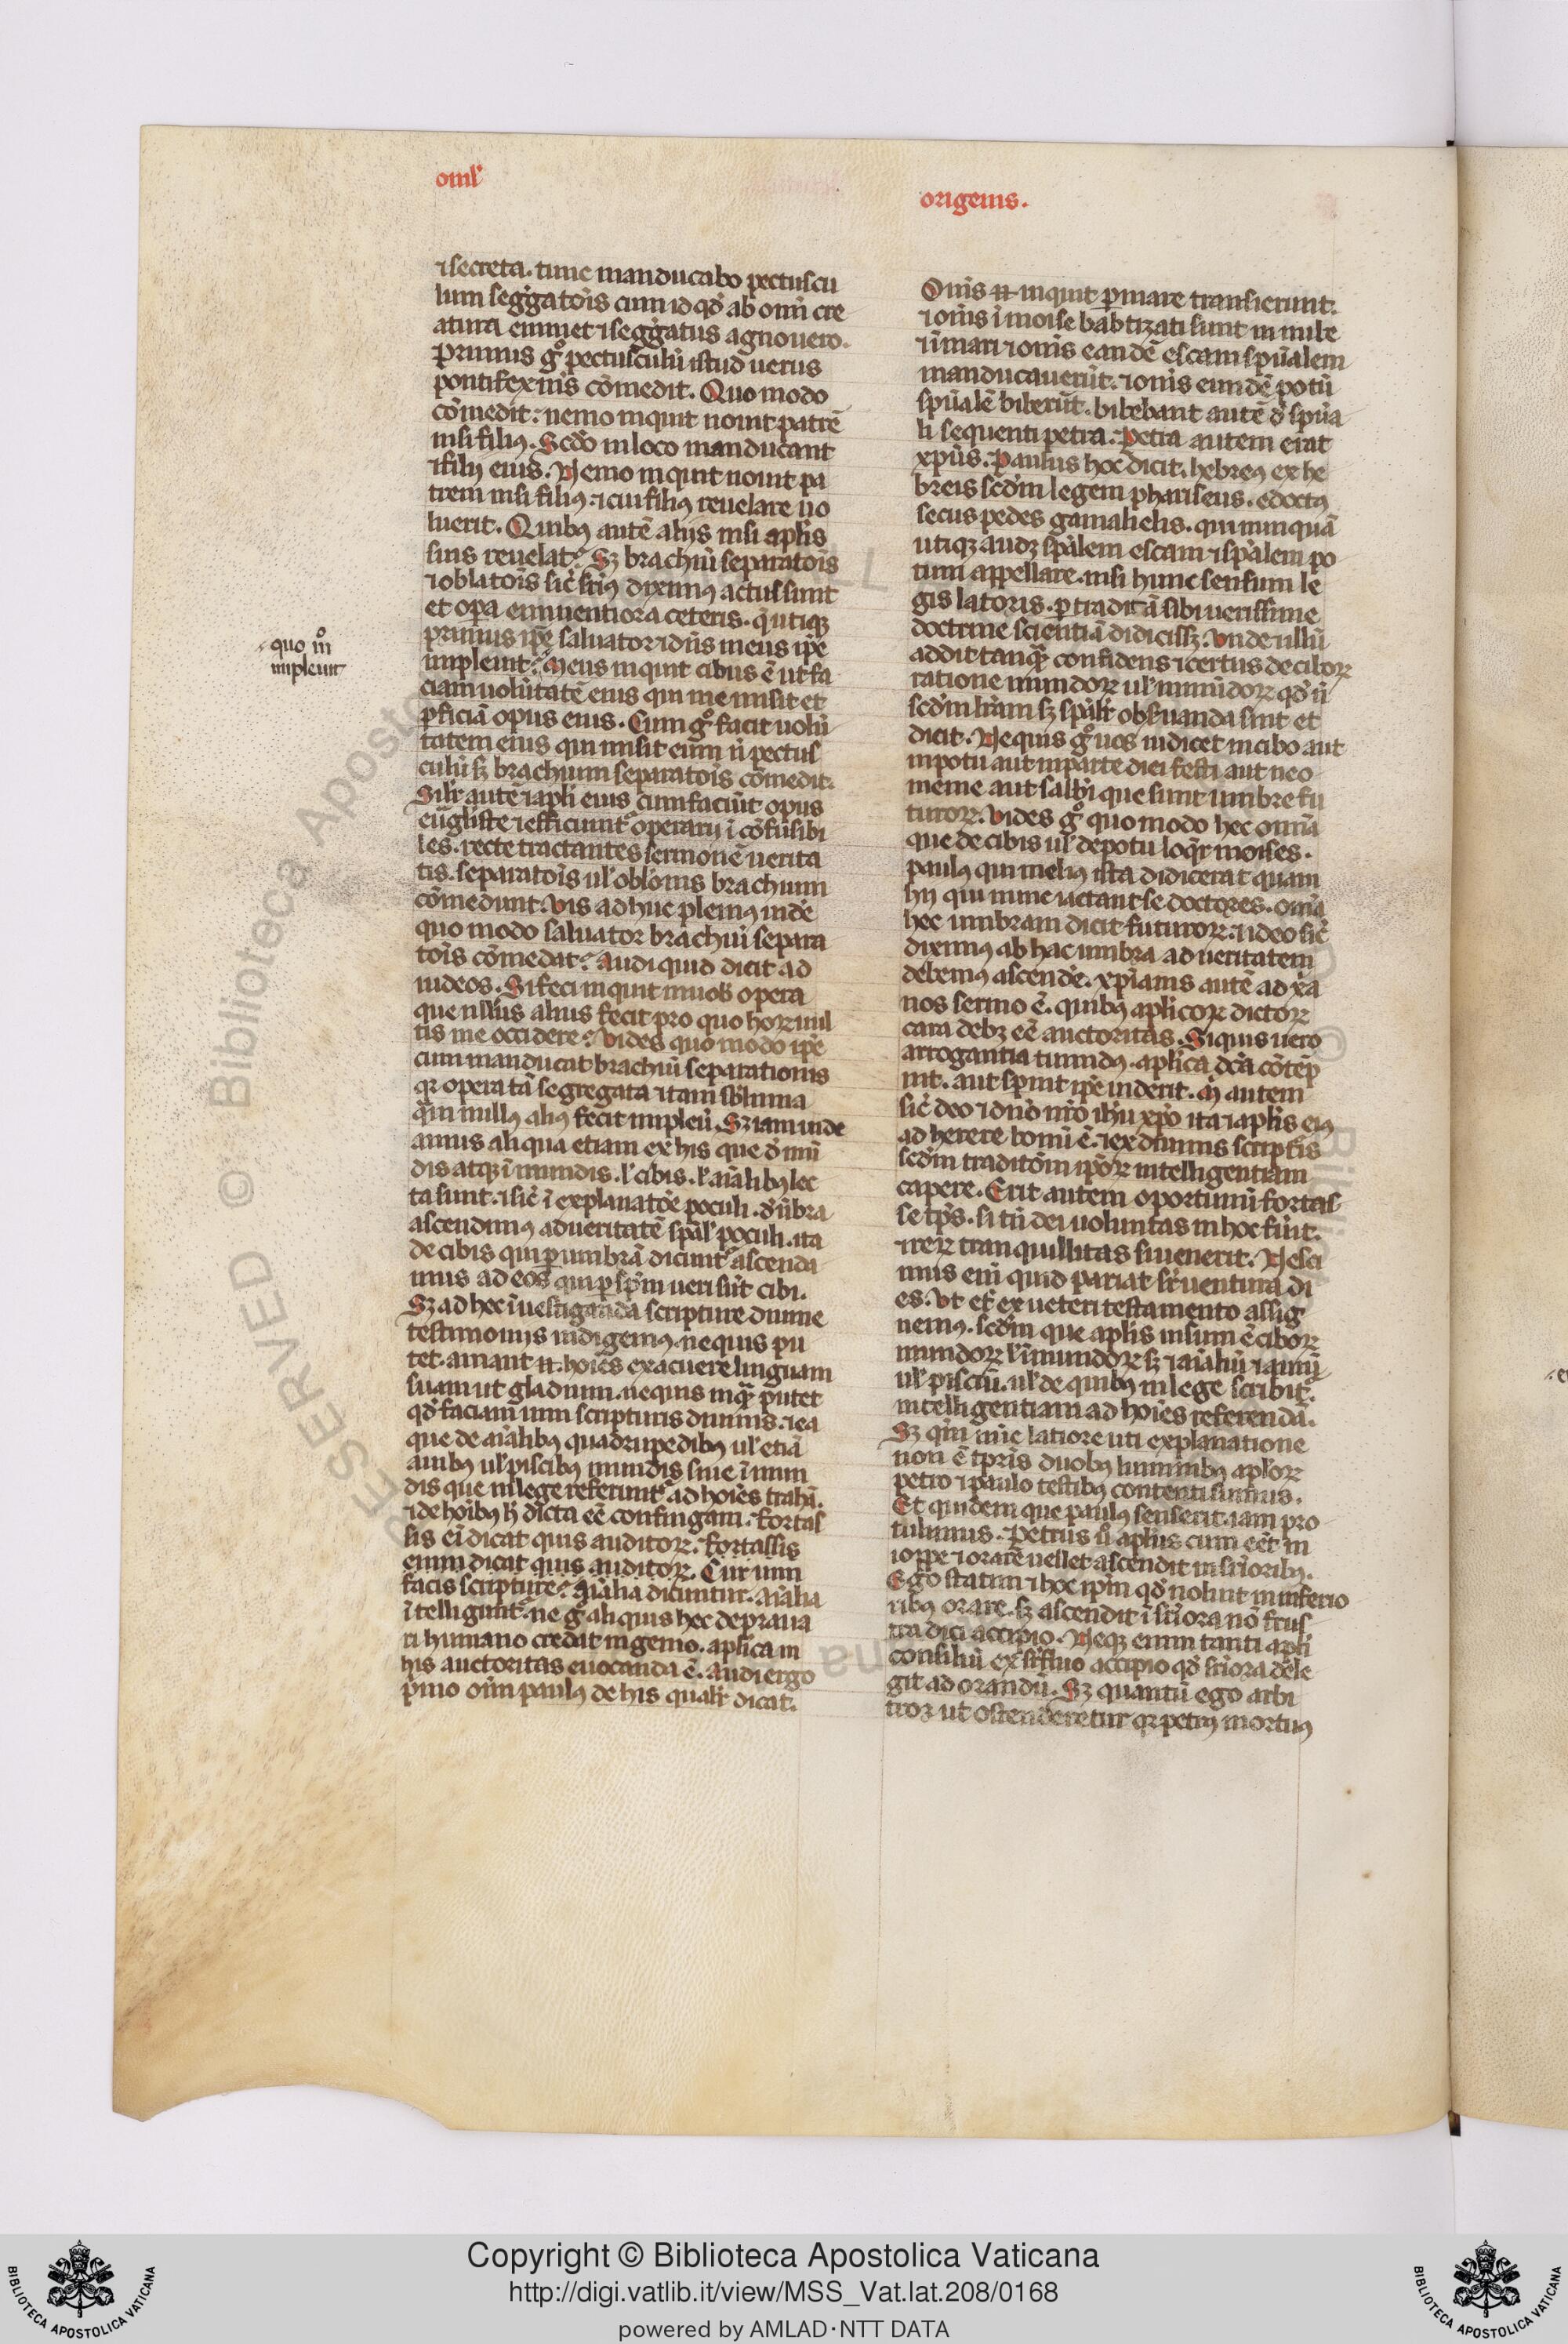 oml'
⁊secreta. tunc manducabo pectuscu
lum seg̃gatoĩs cum id qđ ab omĩ cre
atura eminet ⁊seg̃gatus agnouero.
Primus gͦ pectusculũ istud uerus
pontifex nr̃s cõmedit. Quo modo
cõmedit: nemo inquit nouit patrẽ
nisi filiꝰ. Scd̃o in loco manducant
⁊filij eius. Nemo inquit nouit pa
trem nisi filiꝰ ⁊cui filiꝰ reuelare uo
luerit. Quibꝰ autẽ alijs nisi apl̃is
suis reuelat? Sꝫ brachiũ separatoĩs
⁊oblatoĩs sic̃ supiꝰ diximꝰ actus sunt
et oꝑa eminentiora ceteris. q̃ utiqꝫ
primus ip̃e saluator ⁊dñs meus ip̃e
impleuit? Meus inquit cibus ẽ ut fa
ciam uolũtatẽ eius qui me misit et
ꝑficiã opus eius. Cum gͦ facit uolũ
tatem eius qui misit eum ñ pectus
culũ sꝫ brachium separatoĩs cõmedit.
Silr̃ autẽ ⁊apl̃i eius cum faciũt opus
eũgliste ⁊efficiunt᷑ operarij ĩ cõfũsibi
les. recte tractantes sermonẽ uerita
tis. separatoĩs ul' obl'onis brachium
cõmedunt. Vis adhuc plenĩꝰ uide
quo modo saluator brachiũ separa
toĩs cõmedat? Audi quid dicit ad
iudeos. Si feci inquit in uob̃ opera
que nllĩus alius fecit pro quo hoꝝ uul
tis me occidere? Vides quo modo ip̃e
cum manducat brachiũ separationis
qꝛ opera tã segregata ⁊tam sbl̃imia
q̃m nullꝰ aliꝰ fecit impleũ. Sꝫ iam uide
amus aliqua etiam ex his que đ mũ
dis atqꝫ ĩmundis. l' cibis. l' aĩalibꝰ lec
ta sunt. ⁊sic̃ ĩ explanatõe poculi. đ ũbra
ascendimꝰ ad ueritatẽ spãl' poculi. ita
de cibis qui ꝑ umbrã dicunt᷑ ascenda
mus ad eos qui ꝑ sp̃m ueri sũt cibi.
Sꝫ ad hec ĩuestiganda scripture diuine
testimonijs indigemꝰ. ne quis pu
tet. amant .n. hoĩes exacuere linguam
suam ut gladium. ne quis inqꝫ putet
qđ faciam uim scripturis diuinis. ⁊ea
que de aĩalibꝰ quadrupedibꝰ ul' etiã
auibꝰ ul' piscibꝰ mundis siue ĩ mun
dis que in lege referunt᷑ ad hoĩes trahã.
⁊de hoĩbꝰ h̃ dicta eẽ confingam. fortas
sis eĩ dicat quis auditoꝝ. fortassis
enim dicat quis auditoꝝ. Cur uim
facis scripture? Aĩalia dicuntur. Aĩalia
ĩtelligunt᷑. ne gͦ aliquis hec depraua
ri humano credat ingenio. apl̃ica in
his auctoritas euocanda ẽ. Audi ergo
pͥmo oĩm paulꝰ de his qualr̃ dicat.
quo mͦ
impleuit
origenis.
Om̃s .n. inquit ꝑ mare transierunt.
⁊om̃s ĩ moise babtizati sunt in nube
⁊ĩ mari ⁊om̃s eandẽ escam spũalem
manducauerũt. ⁊om̃s eundẽ potũ
spũalẽ biberũt. bibebant autẽ đ spũa
li sequenti petra. Petra autem erat
xp̃us. Paulus hoc dicit. hebreꝰ ex he
breis scđm legem phariseus. edoctꝰ
secus pedes gamalielis. qui nunquã
utiqꝫ audꝫ spãlem escam ⁊spãlem po
tum appellare. nisi hunc sensum le
gis latoris. ꝑ traditã sibi uerissime
doctrine scientiã didicissꝫ. Vnde illũ
addit tanqꝫ confidens ⁊certus de ciboꝝ
ratione mundoꝝ ul' inmũdoꝝ qđ ñ
scđm lr̃am sꝫ spãlr̃ obs̃uanda sint et
dicit. Ne quis gͦ uos iudicet in cibo aut
in potu aut in parte diei festi aut neo
menie aut sabb̃i que sunt umbre fu
turoꝝ. Vides gͦ quo modo hec omĩa
que de cibis ul' de potu loqr̃ moises.
paulꝰ qui meliꝰ ista didicerat quam
hij qui nunc iactant se doctores. omĩa
hec umbram dicit futuroꝝ. ⁊ideo sic̃
diximꝰ ab hac umbra ad ueritatem
debemꝰ ascendẽ. xp̃ianis autẽ ad xp̃ia
nos sermo ẽ. quibꝰ apl̃icoꝝ dictoꝝ
cara debꝫ eẽ auctoritas. Si quis uero
arrogantia tumidꝰ. apl̃ica dc̃a cõtẽp
nit. aut spnit ip̃e uiderit. Mͥ autem
sic̃ deo ⁊dño nr̃o ihũ xp̃o ita ⁊apl̃is eiꝰ
ad herere bonũ ẽ. ⁊ex diuinis scripturis
scđm traditõm ip̃oꝝ intelligentiam
capere. Erit autem oportunũ fortas
se tp̃s. si tñ dei uoluntas in hoc fũit.
⁊reꝝ tranquillitas siuenerit. Nesci
mus eĩ quid pariat suꝑuentura di
es. Vt et̃ ex ueteri testamento assig
nemꝰ. scđm que apl̃is uisum ẽ ciboꝝ
mundoꝝ l' ĩmundoꝝ sꝫ ⁊aĩaliũ ⁊auiũ
ul' pisciũ. ul' de quibꝰ in lege scribit᷑.
intelligentiam ad hoĩes referendã.
Sꝫ qm̃ nũc latiore uti explanatione
non ẽ tp̃ris duobꝰ luminibꝰ apl̃oꝝ
petro ⁊paulo testibꝰ contenti simus.
Et quidem que paulꝰ senserit. iam pro
tulimus. Petrus uͦ apl̃us cum eẽt in
ioppe ⁊orare uellet ascendit in suꝑioribꝰ.
Ego statim ⁊hoc ip̃m qđ noluit in inferio
ribꝰ orare. sꝫ ascendit ĩ suꝑiora nõ frus
tra dici accipio. Neqꝫ enim tanti apl̃i
consiliũ ex suꝑfluo accipio qđ suꝑiora dele
git ad orandũ. Sꝫ quantũ ego arbi
troꝛ ut ostenderetur qꝛ petrꝰ mortuꝰ
Copyright © Biblioteca Apostolica Vaticana
http://digi.vatlib.it/view/MSS_Vat.lat.208/0168
powered by AMLAD·NTT DATA